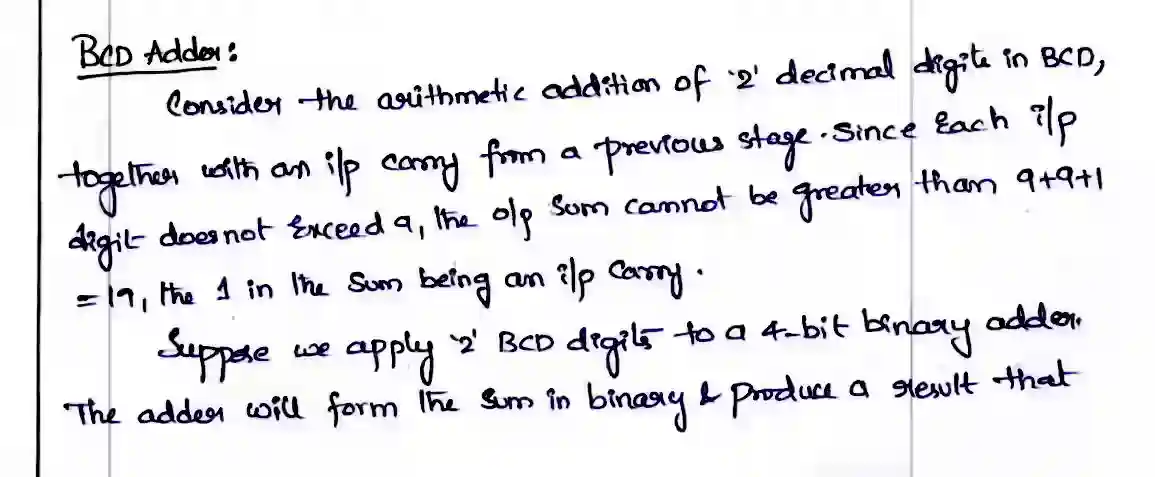 BCD Adder:
Consider the arithmetic addition of '2' decimal digits in BCD,
together with an i/p carry from a previous stage. Since Each i/p
digit does not Exceed 9, the o/p Sum cannot be greater than 9+9+1
=19, the 1 in the Sum being an i/p Carry.
Suppose we apply '2' BCD digits to a 4-bit binary adder.
The adder will form the Sum in binary & produce a result that